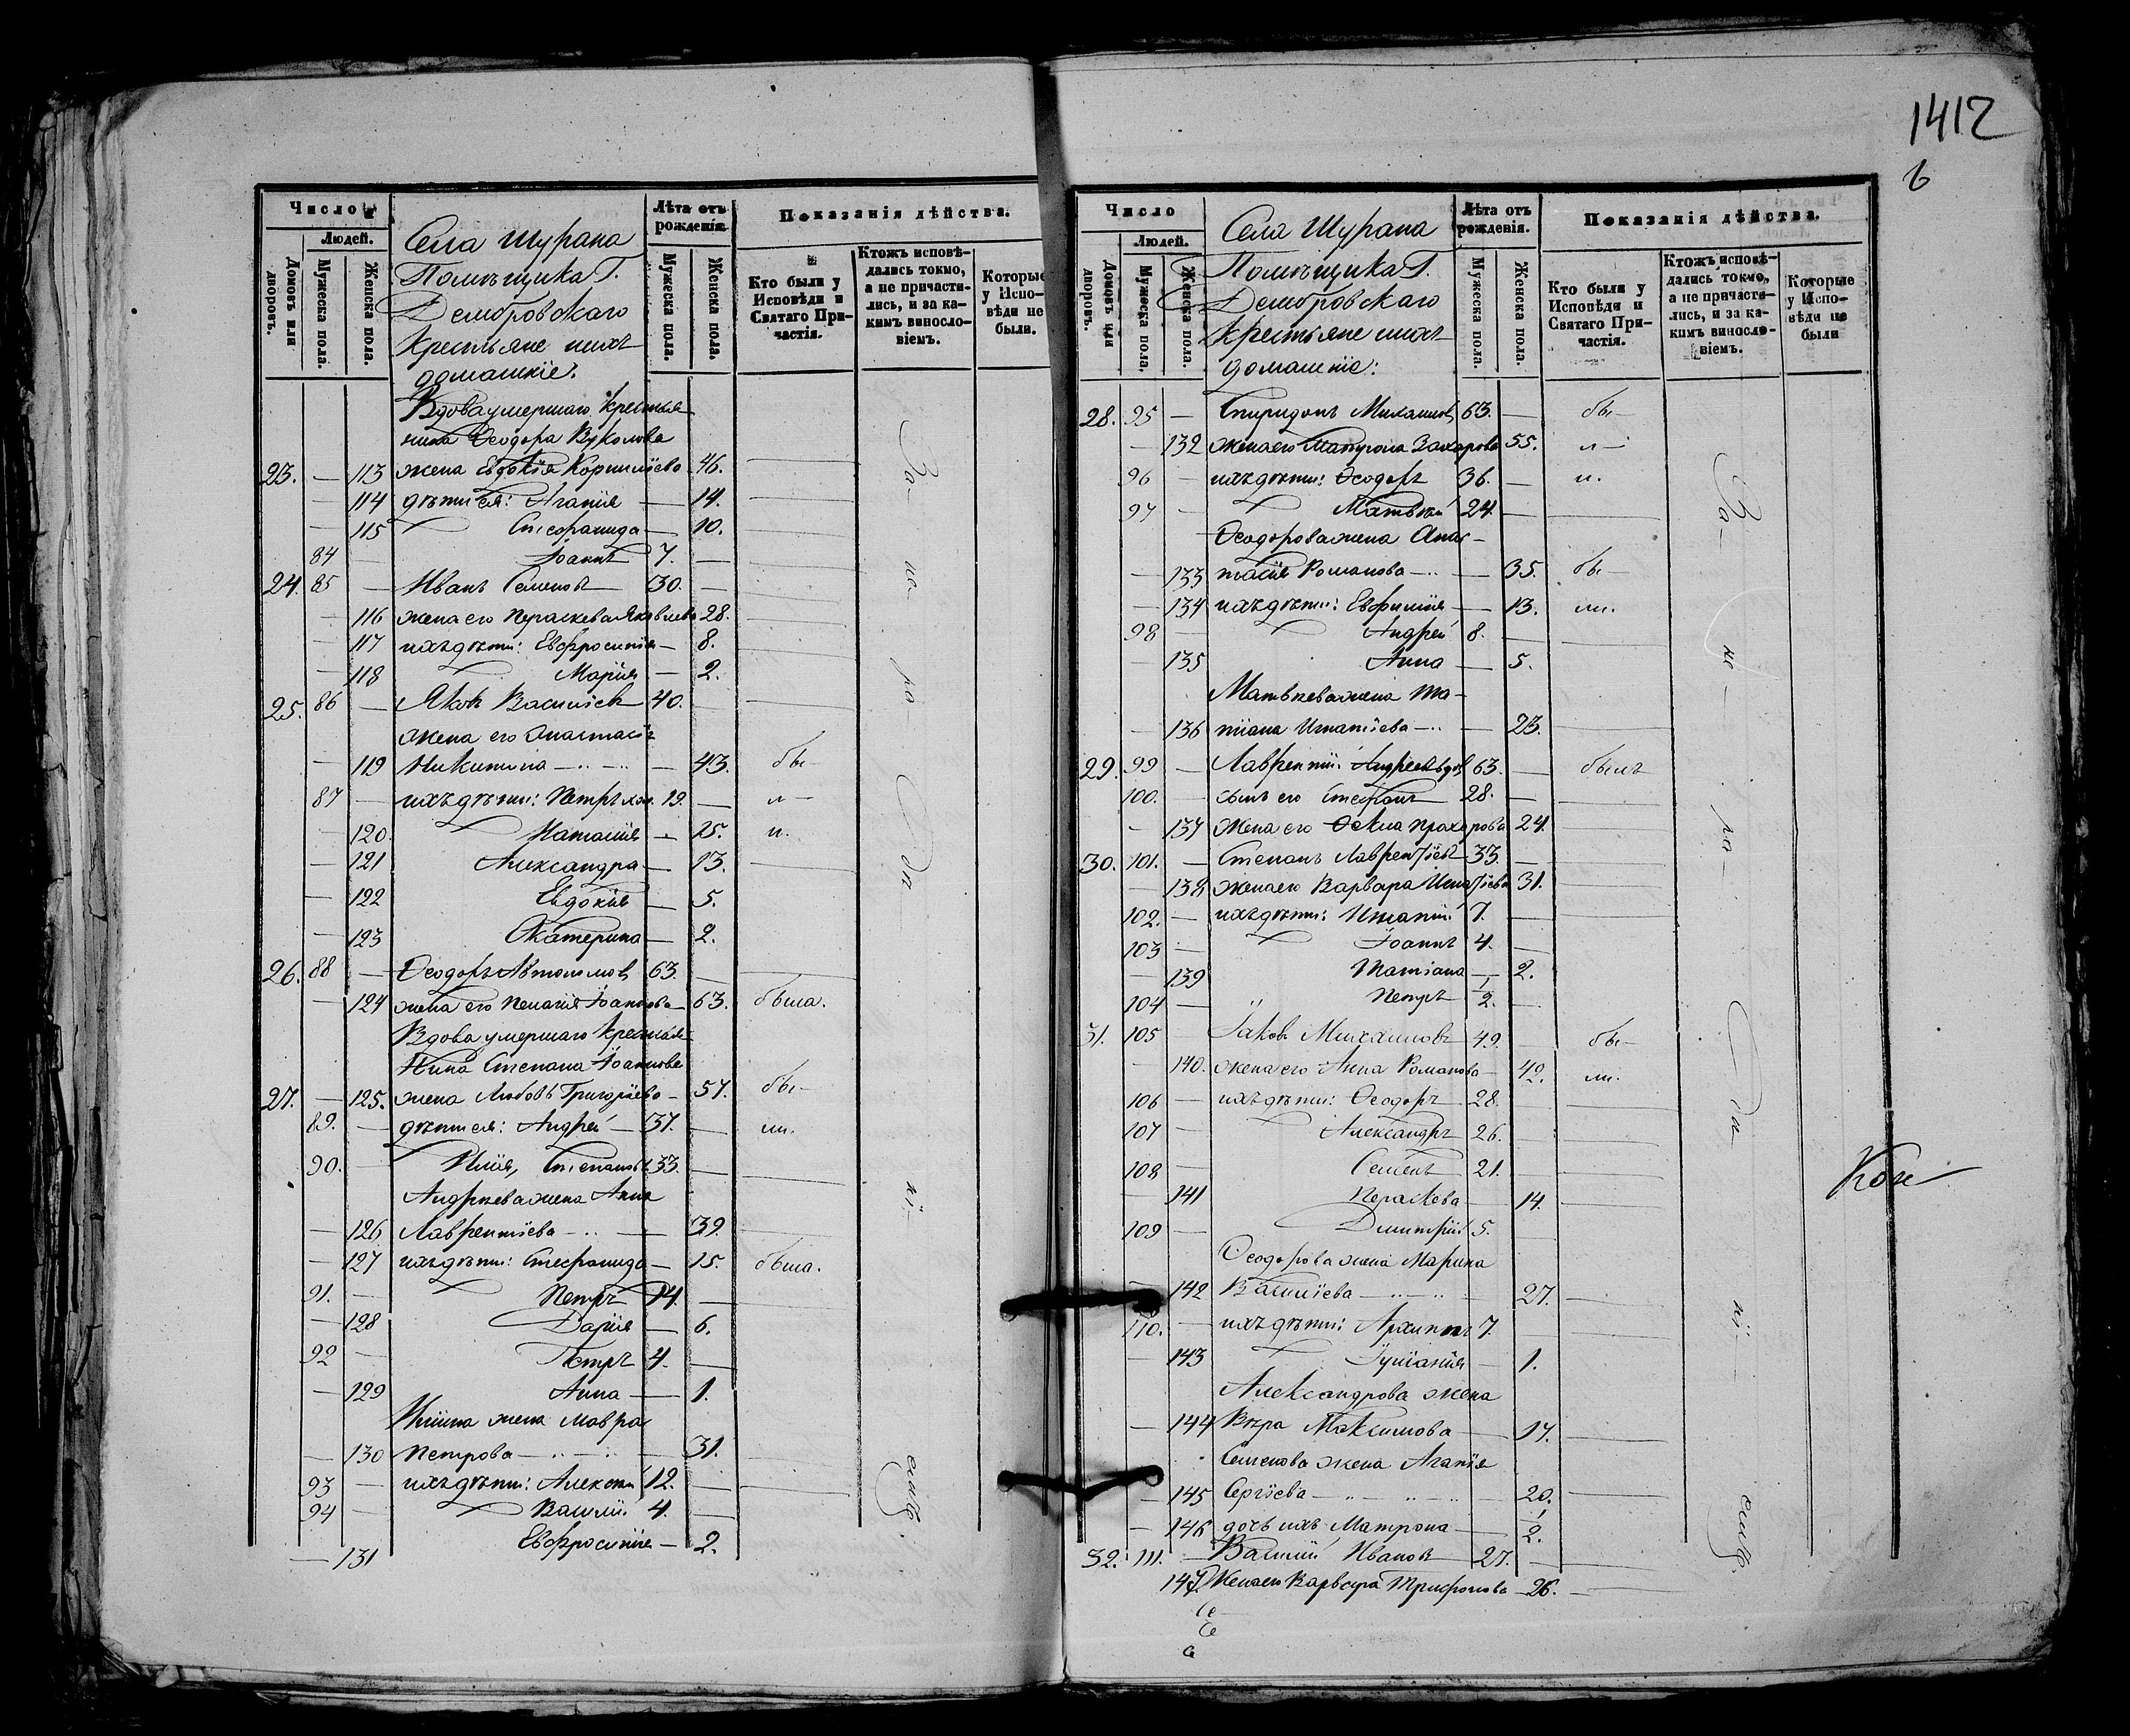 1412
6
Число
Людей.
Домовъ или дворовъ.
Мужеска пола.
Женска пола.
Села Шурана
Помѣщика Г.
Дембровскаго
Крестьяне ихъ
домашніе.
Лѣта отъ рожденія.
Мужеска пола.
Женска пола.
Показанія дѣйства.
Кто были у Исповѣди и Святаго Причастія.
Ктожъ исповѣдались токмо, а не причастились, и за какимъ винословіемъ.
Которые у Исповѣди не были.
Вдова умершаго крестья-
нина Ѳеодора Вуколова
23. — 113 жена Евдокія Корнилієва 46.
— 114 дѣти ея: Агапія — 14.
— 115 Стефанида — 10.
84 — Іоаннъ 7. —
24. 85 — Иванъ Семеновъ 30. —
— 116 жена его Параскева Яковлева 28.
— 117 ихъ дѣти: Евфросинія — 8.
— 118 Марія — 2.
25. 86 — Яковъ Василіевъ 40.
жена его Анастасія
— 119 Никитина — 43. бы-
87 — ихъ дѣти: Петръ 19. — л-
— 120. Наталія — 25. и.
— 121 Александра — 13.
— 122 Евдокія — 5.
— 123 Екатерина — 2.
26. 88 — Ѳеодоръ Автономовъ 63. —
— 124 жена его Пелагія Іоаннова — 63. была.
Вдова умершаго крестья-
нина Стефана Іоаннова
27. — 125. жена Любовь Григоріева — 57. бы-
89. — дѣти ея: Андрей — 37. — ли.
90. — Илія, Степановы 33. —
Андреева жена Анна
— 126 Лаврентіева — 39.
— 127 ихъ дѣти: Стефанида — 15. была.
91. — Петръ 14. —
— 128 Дарія — 6.
92 — Петръ 4. —
— 129 Анна — 1.
Иліина жена Мавра
— 130 Петрова — 31.
93 — ихъ дѣти: Алексѣй 12. —
94 — Василій 4. —
— 131 Евфросинія — 2.
За-
не
ра-
ні-
емъ.
Число
Людей.
Домовъ или дворовъ.
Мужеска пола.
Женска пола.
Села Шурана
Помѣщика Г.
Дембровскаго
Крестьяне ихъ
домашніе:
Лѣта отъ рожденія.
Мужеска пола.
Женска пола.
Показанія дѣйства.
Кто были у Исповѣди и Святаго Причастія.
Ктожъ исповѣдались токмо, а не причастились, и за какимъ винословіемъ.
Которые у Исповѣди не были
28. 95 — Спиридонъ Михаиловъ 63. — бы-
— 132 жена его Матрона Захарова 55. л-
96 — ихъ дѣти: Ѳеодоръ 36. — и.
97 — Матвѣй 24. —
Ѳеодорова жена Анас-
— 133 тасія Романова — 35. бы-
— 134 ихъ дѣти: Евфимія — 13. ли.
98 — Андрей 8. —
— 135 Анна — 5.
Матвѣева жена Та-
— 136 тіана Игнатіева — 23.
29. 99 — Лаврентій Андреевъ вдов 63. — былъ
100. — сынъ его Стефанъ 28. —
- 137 жена его Ѳекла Прохорова 24.
30. 101. — Степанъ Лаврентіевъ 33 —
— 138 жена его Варвара Игнатіева 31.
102. — ихъ дѣти: Игнатій 7. —
103 — Іоаннъ 4. —
— 139 Татіана — 2.
104 — Петръ 1/2. —
31. 105 Іаковъ Михаиловъ 49. — бы-
— 140. жена его Анна Романова — 42. ли.
106 — ихъ дѣти: Ѳеодоръ 28.
107 — Александръ 26.
108 — Семенъ 21.
— 141 Параскева — 14.
109 — Димитрій 5.
Ѳеодорова жена Марина
— 142 Василіева — 27.
110. — ихъ дѣти: Архиппъ 7.
— 143 Іуліанія — 1.
Александрова жена
— 144 Вѣра Максимова — 17.
Семенова жена Агапія
— 145 Сергіева — 20.
— 146 дочь ихъ Матрона — 1/2.
32. 111. — Василій Ивановъ 27. —
147 жена его Варвара Трифонова — 26. —
За-
не-
ні-
емъ.